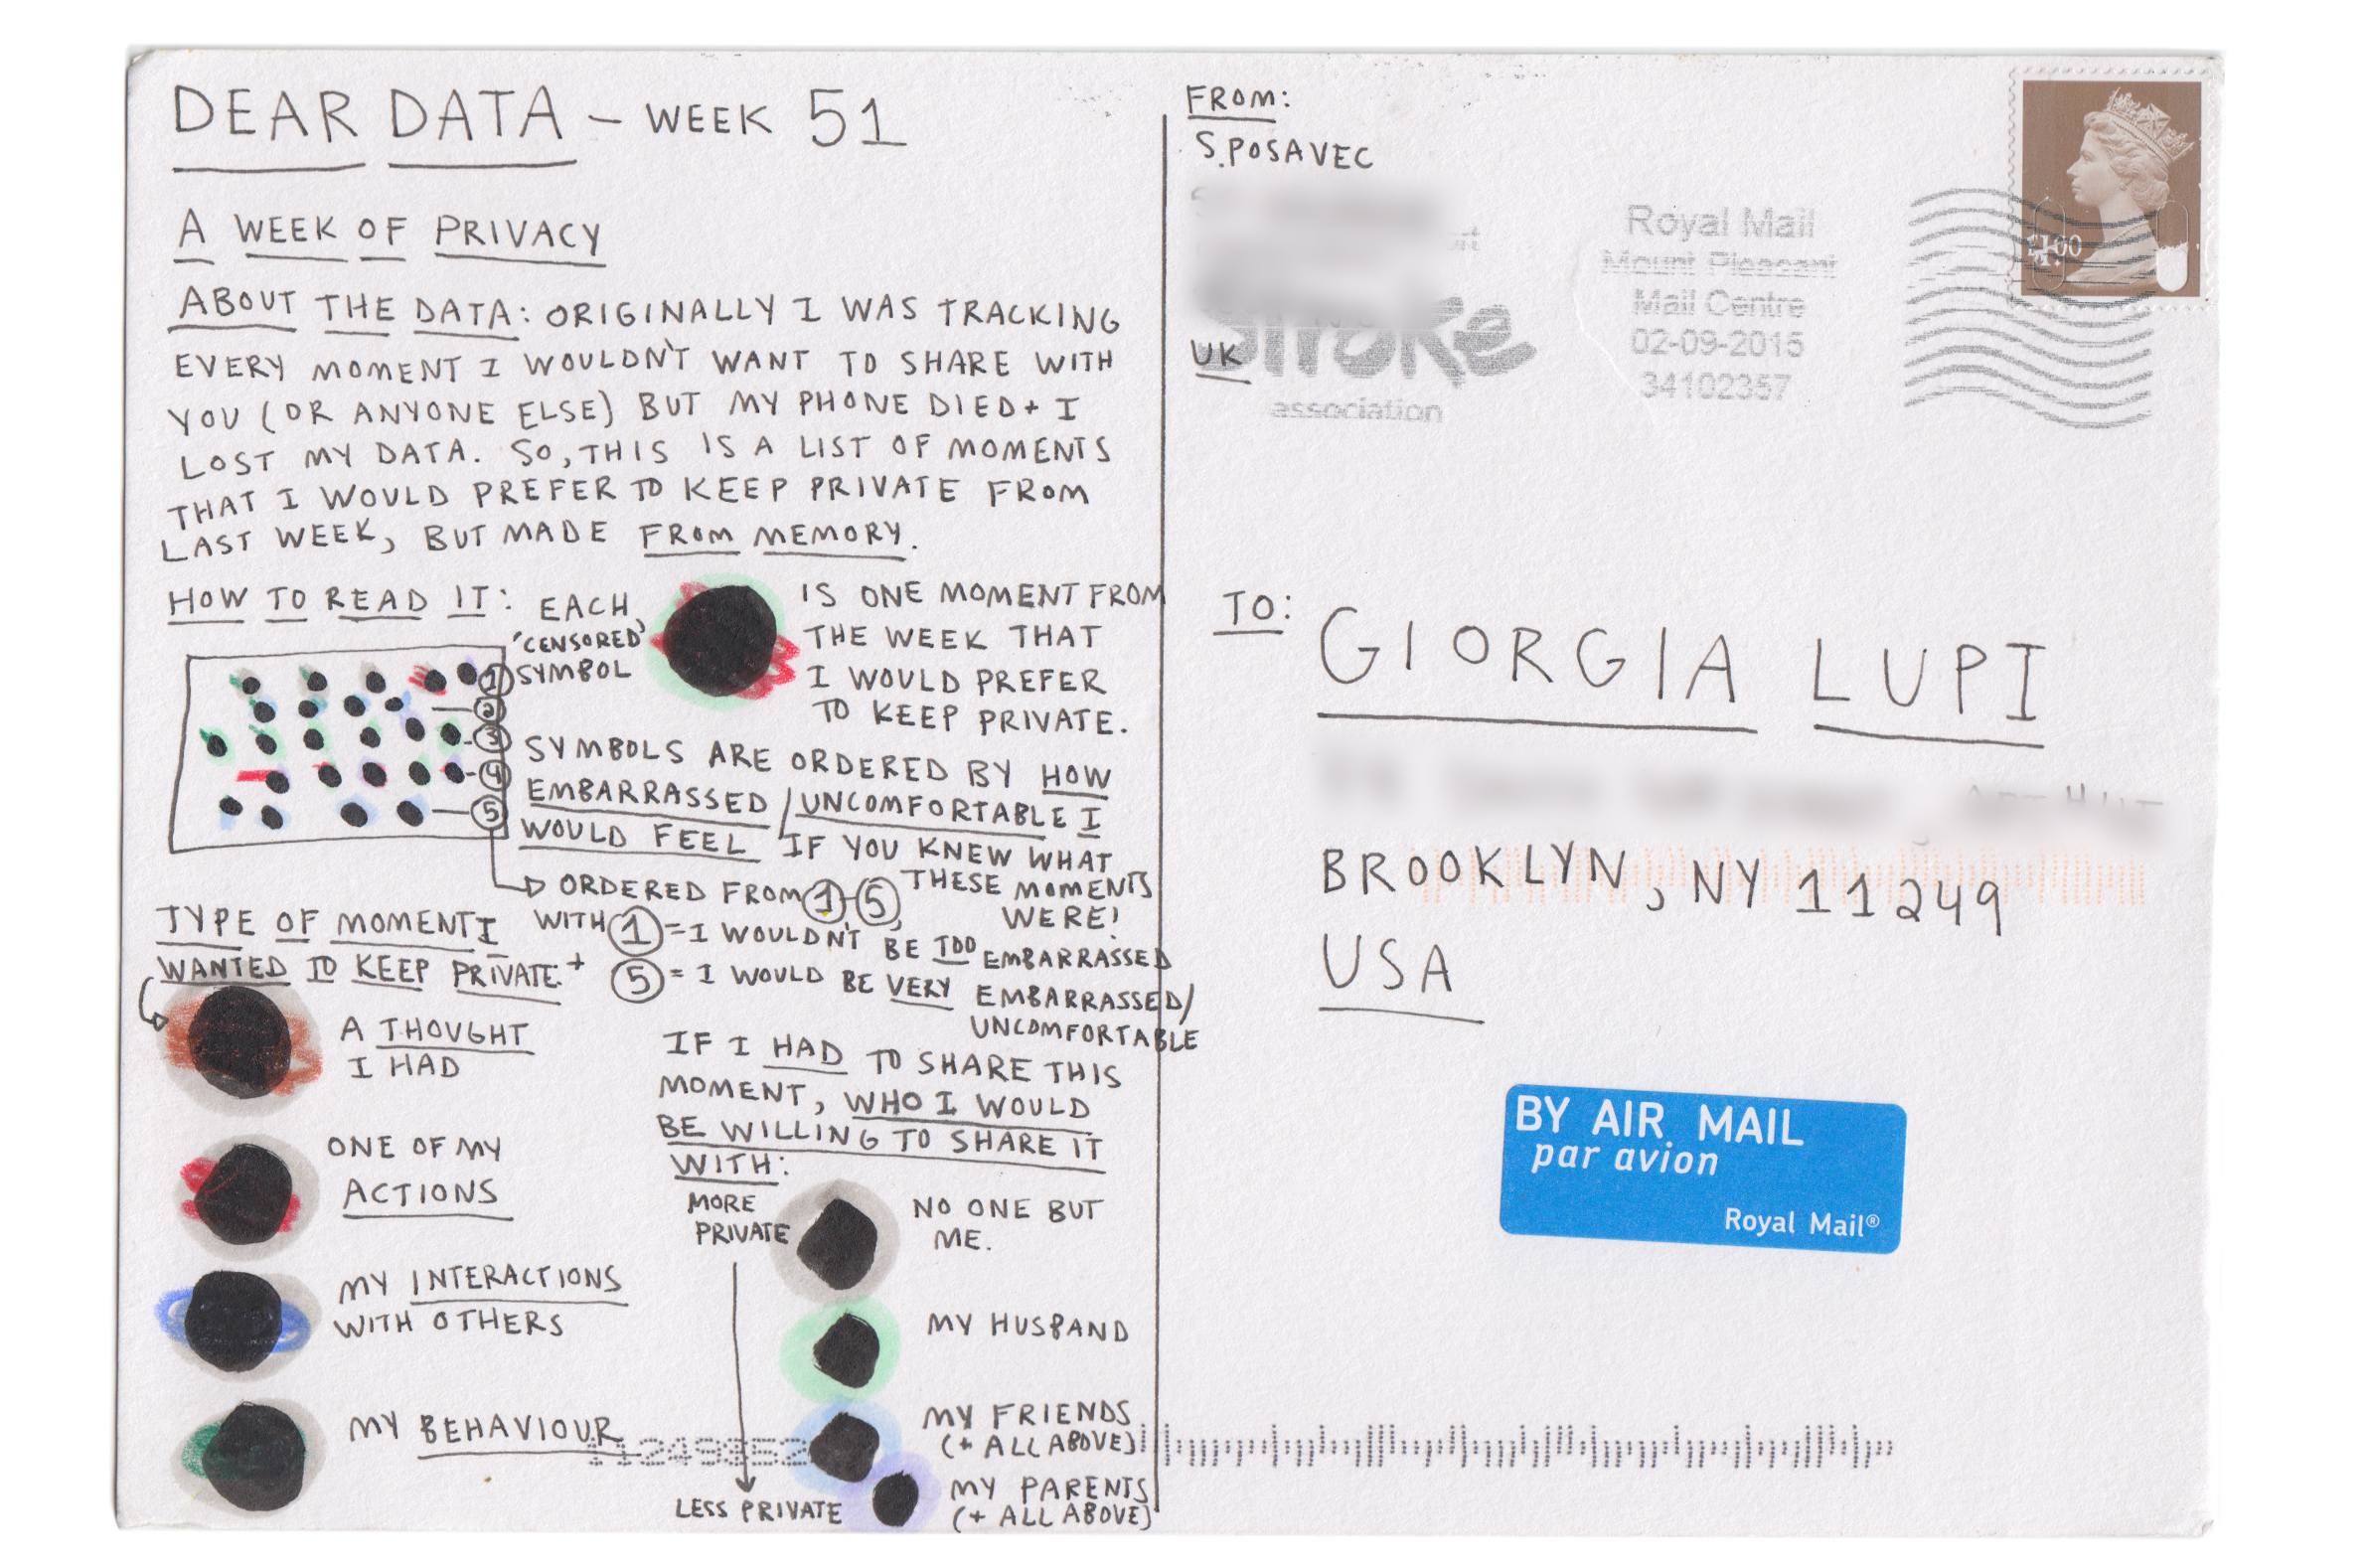 DEAR DATA - WEEK 51
A WEEK OF PRIVACY
ABOUT THE DATA: ORIGINALLY I WAS TRACKING
EVERY MOMENT I WOULDN'T WANT TO SHARE WITH
YOU (OR ANYONE ELSE) BUT MY PHONE DIED + I
LOST MY DATA. SO, THIS IS A LIST OF MOMENTS
THAT I WOULD PREFER TO KEEP PRIVATE FROM
LAST WEEK, BUT MADE FROM MEMORY.
HOW TO READ IT: EACH
'CENSORED'
SYMBOL
IS ONE MOMENT FROM
THE WEEK THAT
I WOULD PREFER
TO KEEP PRIVATE.
1
2
3
4
5
SYMBOLS ARE ORDERED BY HOW
EMBARRASSED/UNCOMFORTABLE I
WOULD FEEL IF YOU KNEW WHAT
THESE MOMENTS
WERE!
ORDERED FROM 1-5,
WITH 1 = I WOULDN'T BE TOO EMBARRASSED
5 = I WOULD BE VERY EMBARRASSED/
UNCOMFORTABLE
TYPE OF MOMENT I
WANTED TO KEEP PRIVATE +
A THOUGHT
I HAD
ONE OF MY
ACTIONS
MY INTERACTIONS
WITH OTHERS
MY BEHAVIOUR
IF I HAD TO SHARE THIS
MOMENT, WHO I WOULD
BE WILLING TO SHARE IT
WITH:
MORE
PRIVATE
NO ONE BUT
ME.
MY HUSBAND
MY FRIENDS
(+ ALL ABOVE)
MY PARENTS
(+ ALL ABOVE)
LESS PRIVATE
FROM:
S. POSAVEC
UK
stroke
association
Royal Mail
Mount Pleasant
Mail Centre
02-09-2015
34102357
£1.00
TO: GIORGIA LUPI
BROOKLYN, NY 11249
USA
BY AIR MAIL
par avion
Royal Mail®